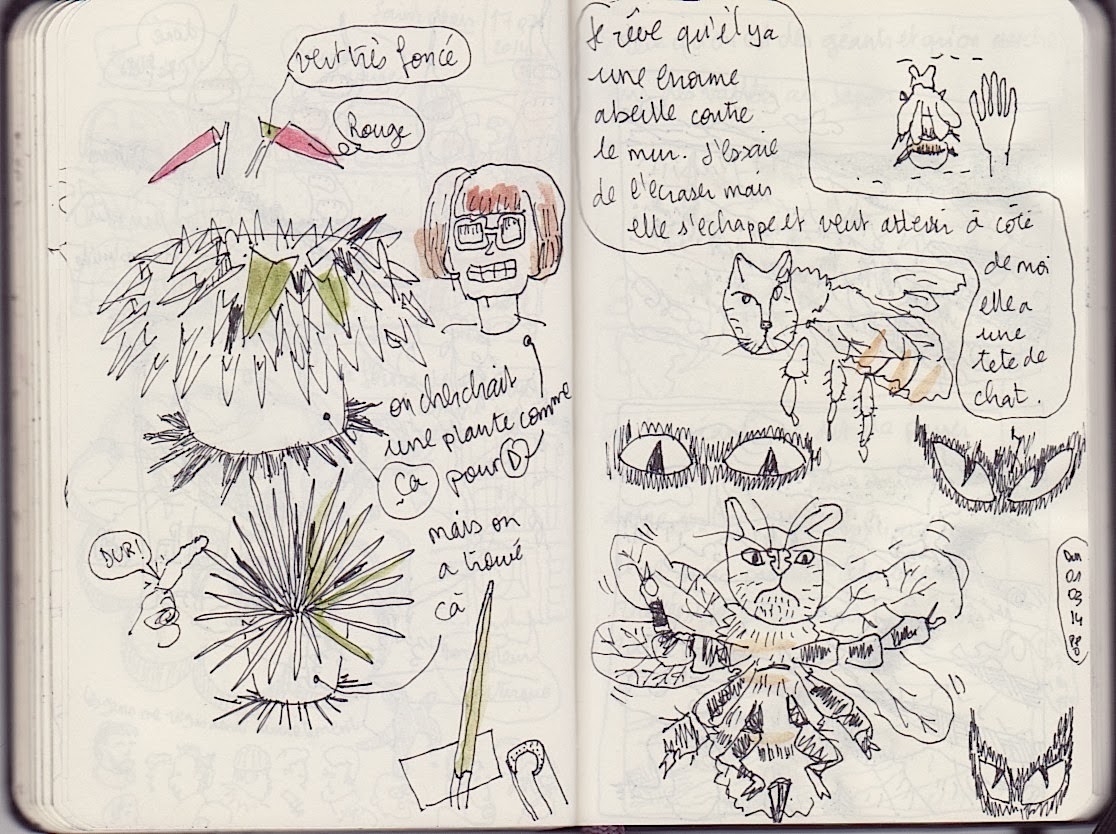 vert très foncé
Rouge
on cherchait
une plante comme
ça pour D
mais on
a trouvé
çà
DUR!
Je rêve qu'il y a
une enorme
abeille contre
le mur. J'essaie
de l'écraser mais
elle s'echappe et veut atterrir à côté
de moi
elle a
une
tete de
chat.
01
03
14